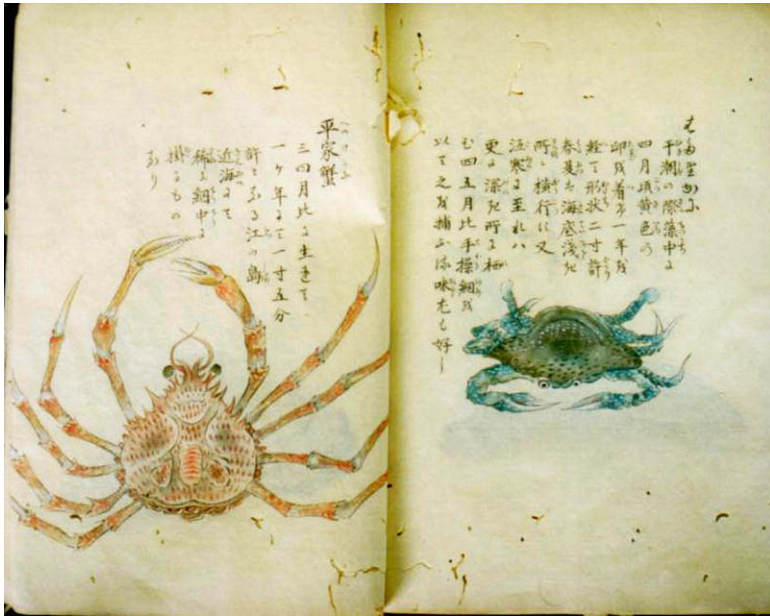 干潮の際藻中に
四月頃黄色の
卵を着す一年を
経て形状二寸許
春夏は海底浅き
所に横行し又
冱寒に至れハ
更に深き所に栖
む四五月比手操網を
以て之を捕ふ味尤も好し
平家蟹
三四月比に生
一ケ年にて一寸五分
許となる江の島
近海にて
稀に網中に
掛るもの
あり